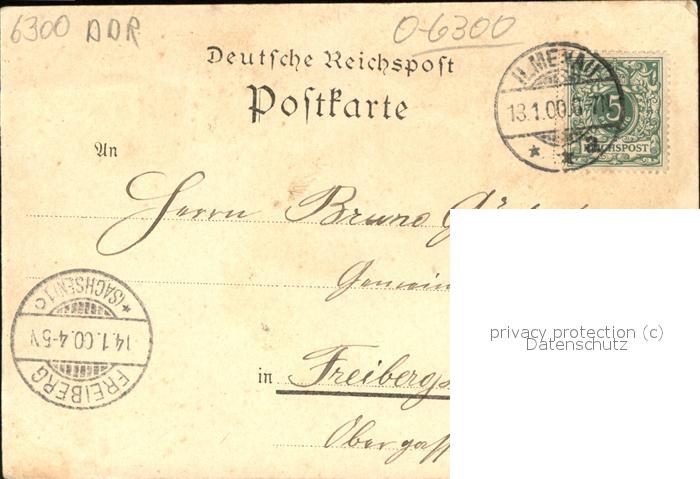 6300 DDR
0-6300
Deutsche Reichspost
Postkarte
ILMENAU
13.1.00.
a
5
REICHSPOST
An
Herrn Bruno
(SACHSEN) 1c
14.1.00.4-5N
FREIBERG
in Freiberg
privacy protection (c)
Datenschutz